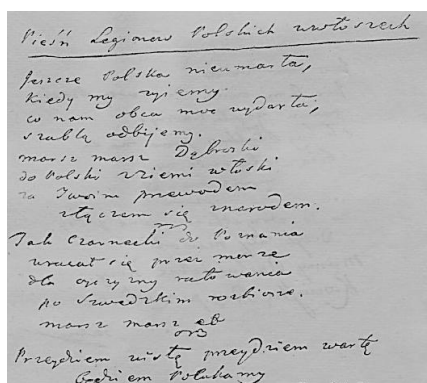 Pieśń Legionow Polskich wewłoszech
Jeszcze Polska nieumarła,
kiedy my zyiemy.
co nam obca moc wydarła,
szablą odbijemy.
marsz marsz Dąbroski
do Polski zziemi włoski
za Twoim przewodem
złączem się znarodem.
Jak Czarnecki do Poznania
wracał się przez morze
dla oyczyzny ratowania
po Szwedzkim rozbiorze.
marsz marsz etc
Przeydziem wisłę przeydziem wartę
będziem Polakamy